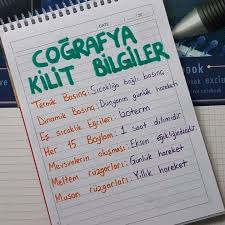 COĞRAFYA
KİLİT BİLGİLER
Termik Basınç: Sıcaklığa bağlı basınç
Dinamik Basınç: Dünyanın günlük hareketi
Eş sıcaklık Eğrileri: İzoterm
Her 15 Boylam: 1 saat dilimidir.
Mevsimlerin oluşması: Eksen eğikliğindendir.
Meltem rüzgarları: Günlük hareket
Muson rüzgarları: Yıllık hareket